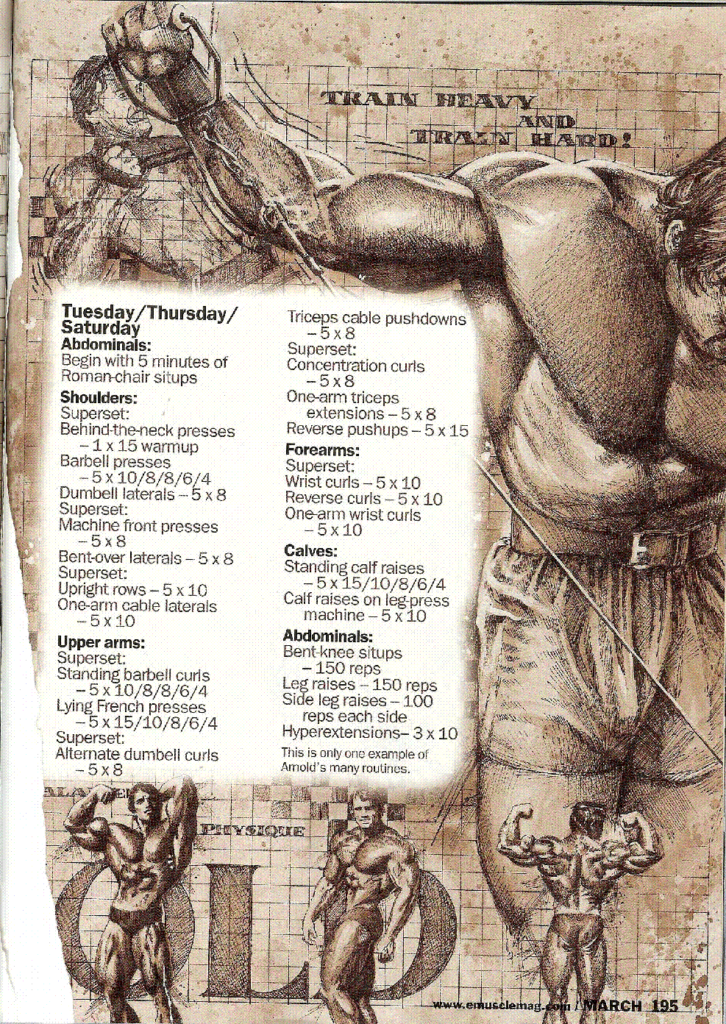 TRAIN HEAVY
AND
TRAIN HARD!
Tuesday/Thursday/
Saturday
Abdominals:
Begin with 5 minutes of
Roman-chair situps
Shoulders:
Superset:
Behind-the-neck presses
– 1 x 15 warmup
Barbell presses
– 5 x 10/8/8/6/4
Dumbell laterals – 5 x 8
Superset:
Machine front presses
– 5 x 8
Bent-over laterals – 5 x 8
Superset:
Upright rows – 5 x 10
One-arm cable laterals
– 5 x 10
Upper arms:
Superset:
Standing barbell curls
– 5 x 10/8/8/6/4
Lying French presses
– 5 x 15/10/8/6/4
Superset:
Alternate dumbell curls
– 5 x 8
Triceps cable pushdowns
– 5 x 8
Superset:
Concentration curls
– 5 x 8
One-arm triceps
extensions – 5 x 8
Reverse pushups – 5 x 15
Forearms:
Superset:
Wrist curls – 5 x 10
Reverse curls – 5 x 10
One-arm wrist curls
– 5 x 10
Calves:
Standing calf raises
– 5 x 15/10/8/6/4
Calf raises on leg-press
machine – 5 x 10
Abdominals:
Bent-knee situps
– 150 reps
Leg raises – 150 reps
Side leg raises – 100
reps each side
Hyperextensions– 3 x 10
This is only one example of
Arnold's many routines.
PHYSIQUE
OLD
www.emusclemag.com / MARCH 195